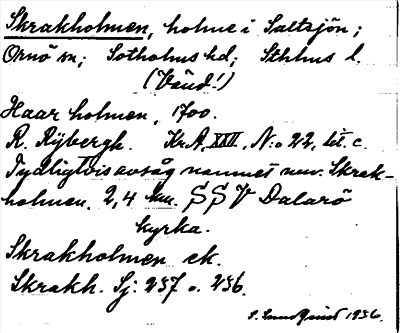 Skrakholmen, holme i Saltsjön;
Ornö sn; Sotholms hd; Sthlms l.
(Vänd!)
Haar holmen, 1700.
R. Rÿbergh. Kr.A, XXII, N:o 22, lit. c.
Tydligtvis avsåg namnet nuv. Skrak-
holmen. 2,4 km. SSV Dalarö
kyrka.
Skrakholmen ek.
Skrakh. Sj: 237 o. 236.
1936.